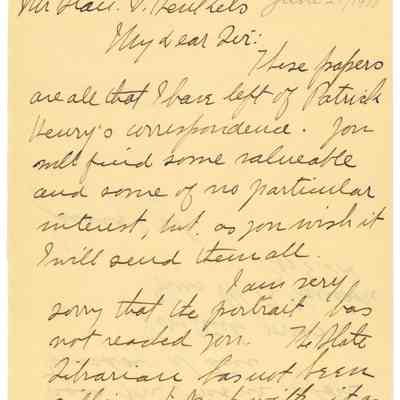 Mr Stan. V. Henkels June 2
My dear Sir:
These papers
are all that I have left of Patrick
Henry's correspondence. You
will find some valueable
and some of no particular
interest, but as you wish it
I will send them all.
I am very
sorry that the portrait has
not reached you. The State
Librarian has not been
willing to part with it